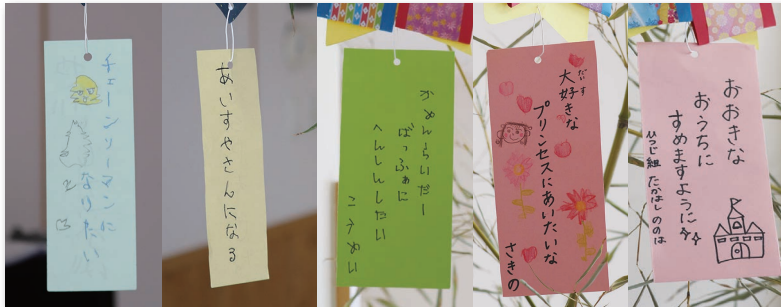 チェーンソーマンに
なりたい
あいすやさんになる
かめんらいだー
ばっふぁに
へんしんしたい
だいす
大好きな
プリンセスにあいたいな
さきの
おおきな
おうちに
すめますように
ひつじ組 たかはし ののは